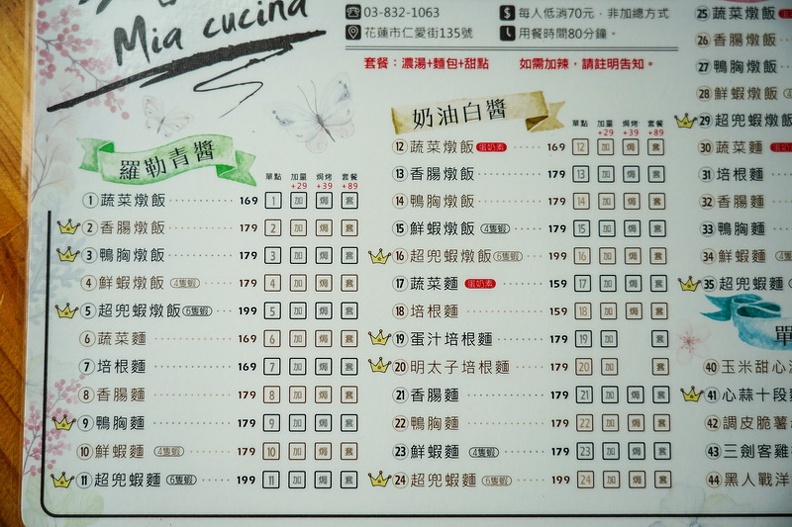 Mia cucina
03-832-1063
花蓮市仁愛街135號
每人低消70元，非加總方式
用餐時間80分鐘。
套餐：濃湯+麵包+甜點 如需加辣，請註明告知。
羅勒青醬
單點 加量+29 焗烤+39 套餐+89
1 蔬菜燉飯 169 1 加 焗 套
2 香腸燉飯 179 2 加 焗 套
3 鴨胸燉飯 179 3 加 焗 套
4 鮮蝦燉飯 4隻蝦 179 4 加 焗 套
5 超兜蝦燉飯 6隻蝦 199 5 加 焗 套
6 蔬菜麵 169 6 加 焗 套
7 培根麵 169 7 加 焗 套
8 香腸麵 179 8 加 焗 套
9 鴨胸麵 179 9 加 焗 套
10 鮮蝦麵 4隻蝦 179 10 加 焗 套
11 超兜蝦麵 6隻蝦 199 11 加 焗 套
奶油白醬
單點 加量+29 焗烤+39 套餐+89
12 蔬菜燉飯 蛋奶素 169 12 加 焗 套
13 香腸燉飯 179 13 加 焗 套
14 鴨胸燉飯 179 14 加 焗 套
15 鮮蝦燉飯 4隻蝦 179 15 加 焗 套
16 超兜蝦燉飯 6隻蝦 199 16 加 焗 套
17 蔬菜麵 蛋奶素 159 17 加 焗 套
18 培根麵 159 18 加 焗 套
19 蛋汁培根麵 179 19 加 套
20 明太子培根麵 179 20 加 套
21 香腸麵 179 21 加 焗 套
22 鴨胸麵 179 22 加 焗 套
23 鮮蝦麵 4隻蝦 179 23 加 焗 套
24 超兜蝦麵 6隻蝦 199 24 加 焗 套
25 蔬菜燉飯
26 香腸燉飯
27 鴨胸燉飯
28 鮮蝦燉飯
29 超兜蝦燉飯
30 蔬菜麵
31 培根麵
32 香腸麵
33 鴨胸麵
34 鮮蝦麵
35 超兜蝦麵
單
40 玉米甜心
41 心蒜十段
42 調皮脆薯
43 三劍客雞
44 黑人戰洋